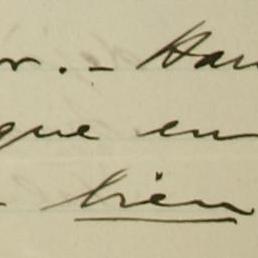 r. – Hau
que en
bien